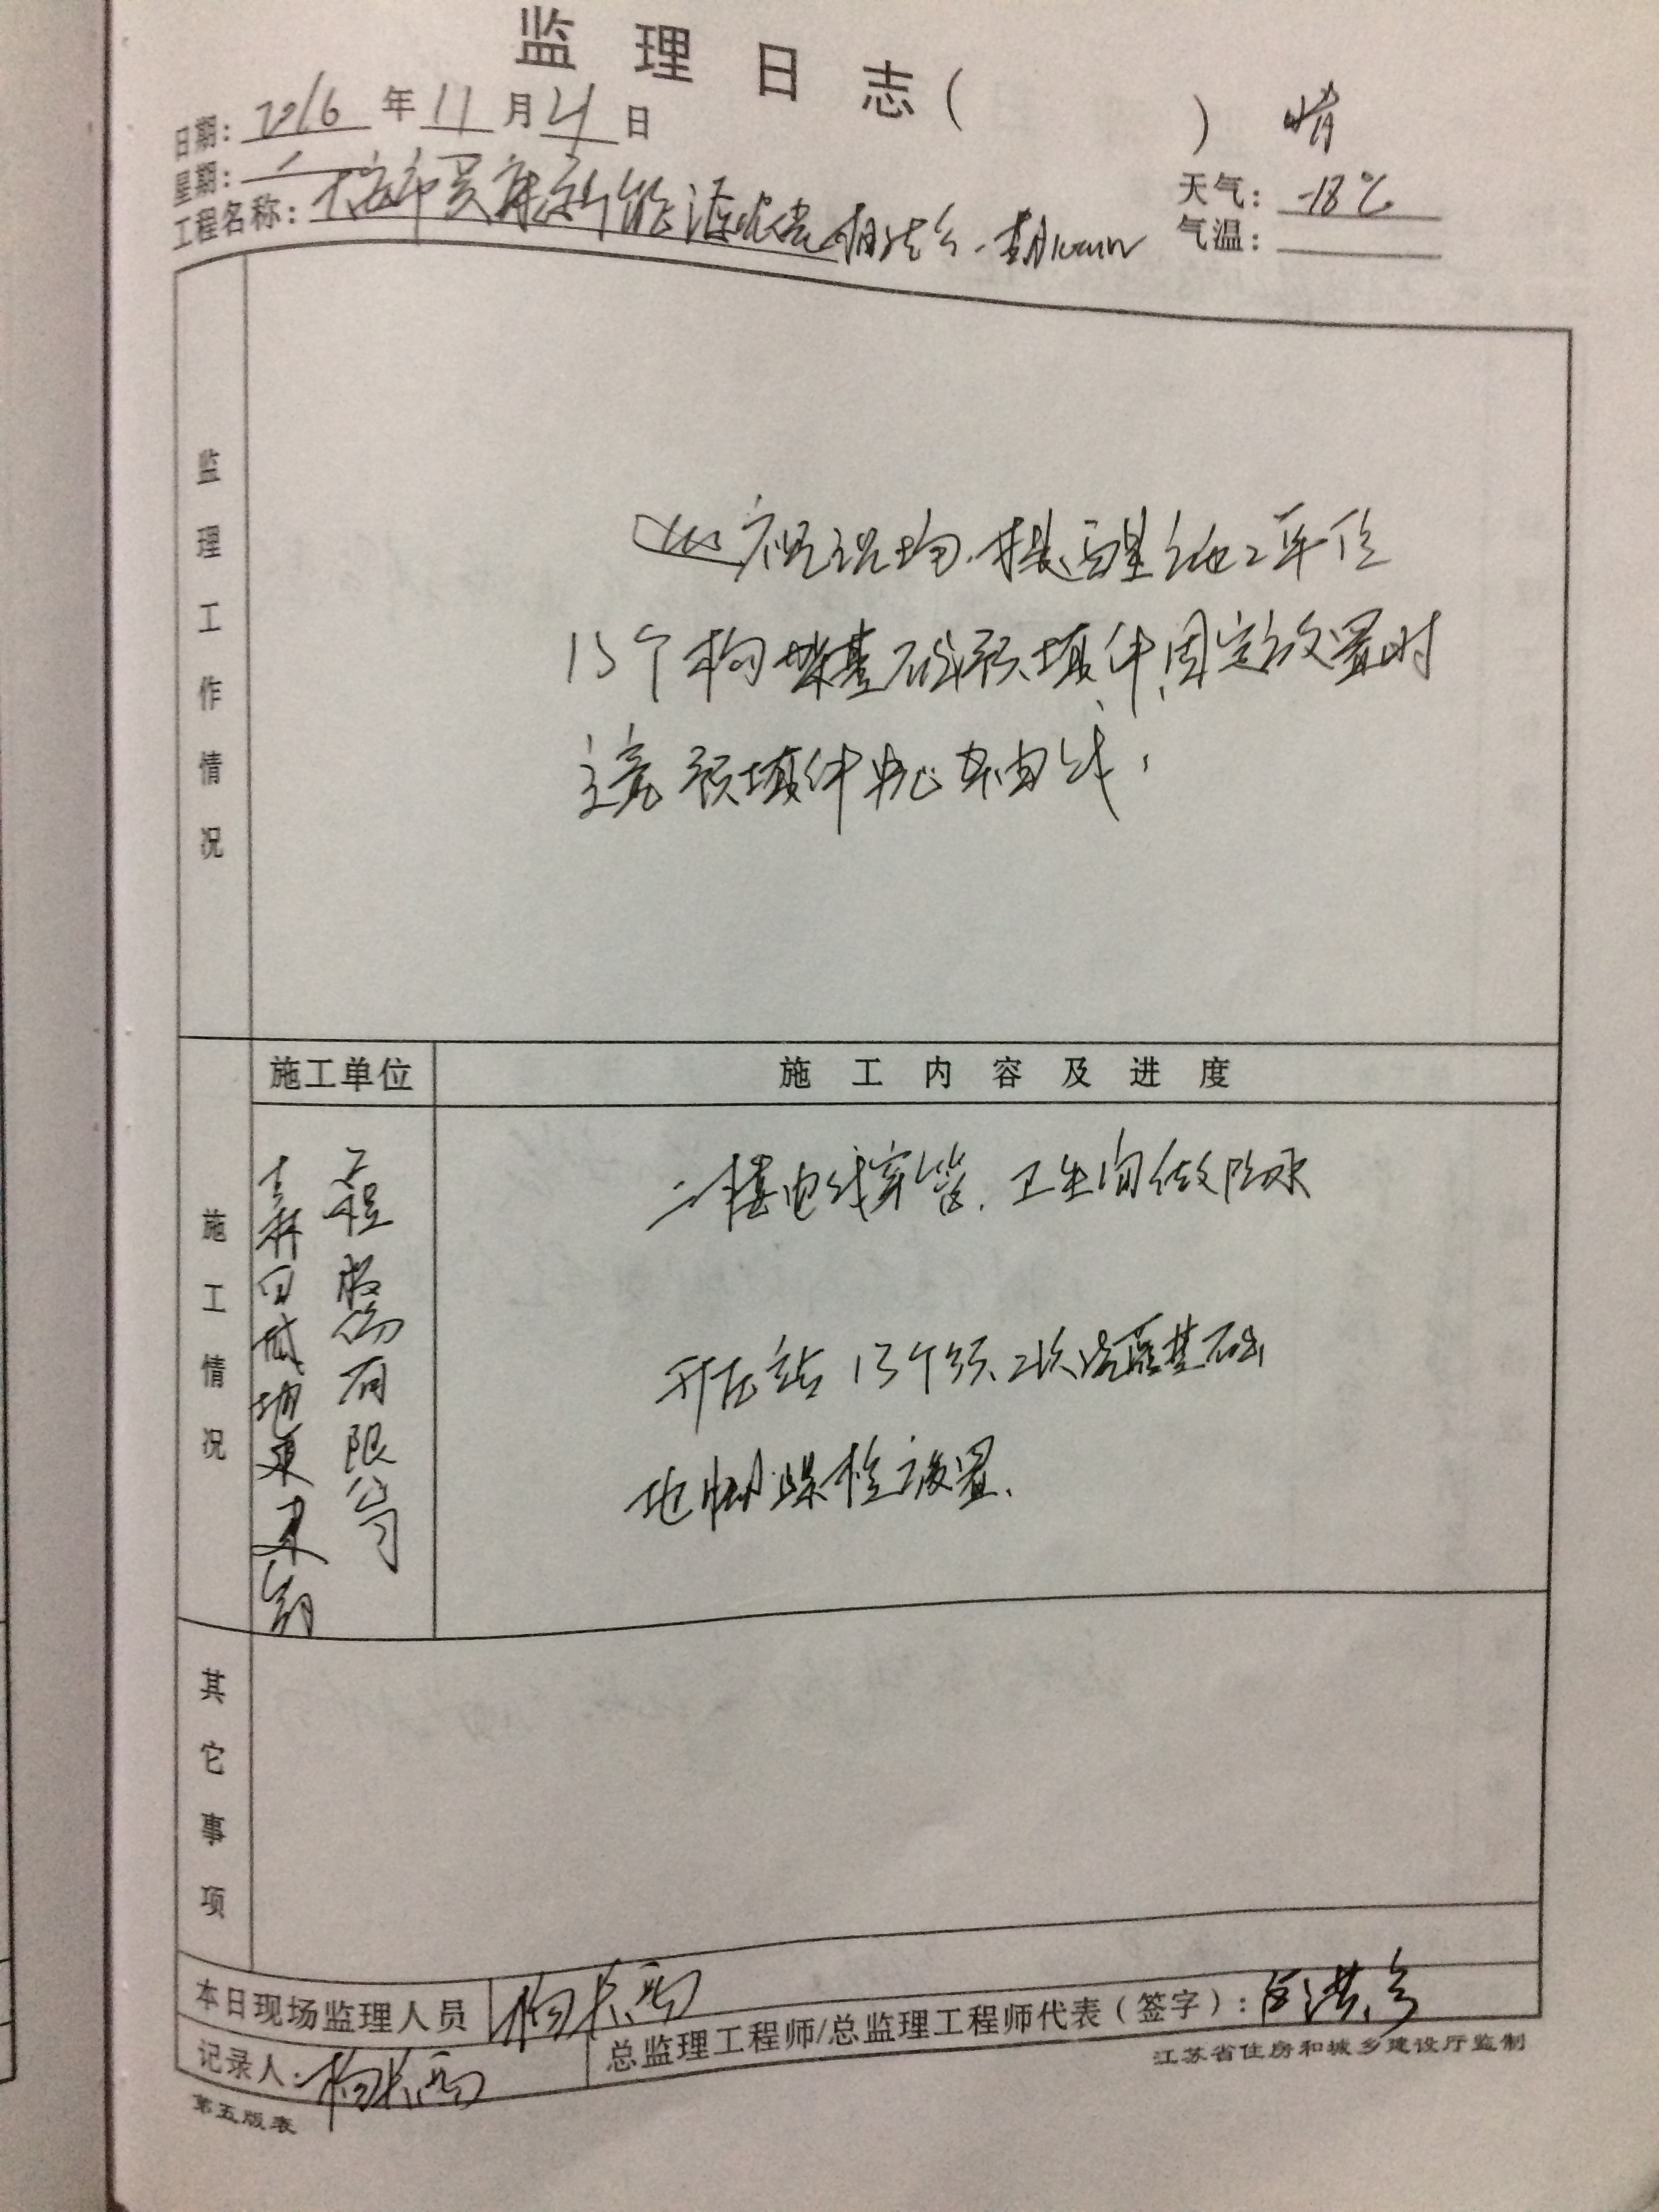 监理日志( )
晴
日期: 2016 年 11 月 21 日
星期: 一
天气: -18℃
气温:
工程名称: 新能源
监理工作情况
巡视现场.提醒施工单位
15个构架基础预填件固定放置时
注意预填件中心轴线,
施工单位
施工内容及进度
施工情况
工程股份有限公司
二楼电线穿管.卫生间做防水
升压站 15个 二次浇灌基础
地脚螺栓设置.
其它事项
本日现场监理人员 杨长西
总监理工程师/总监理工程师代表(签字):
记录人: 杨长西
江苏省住房和城乡建设厅监制
第五版表